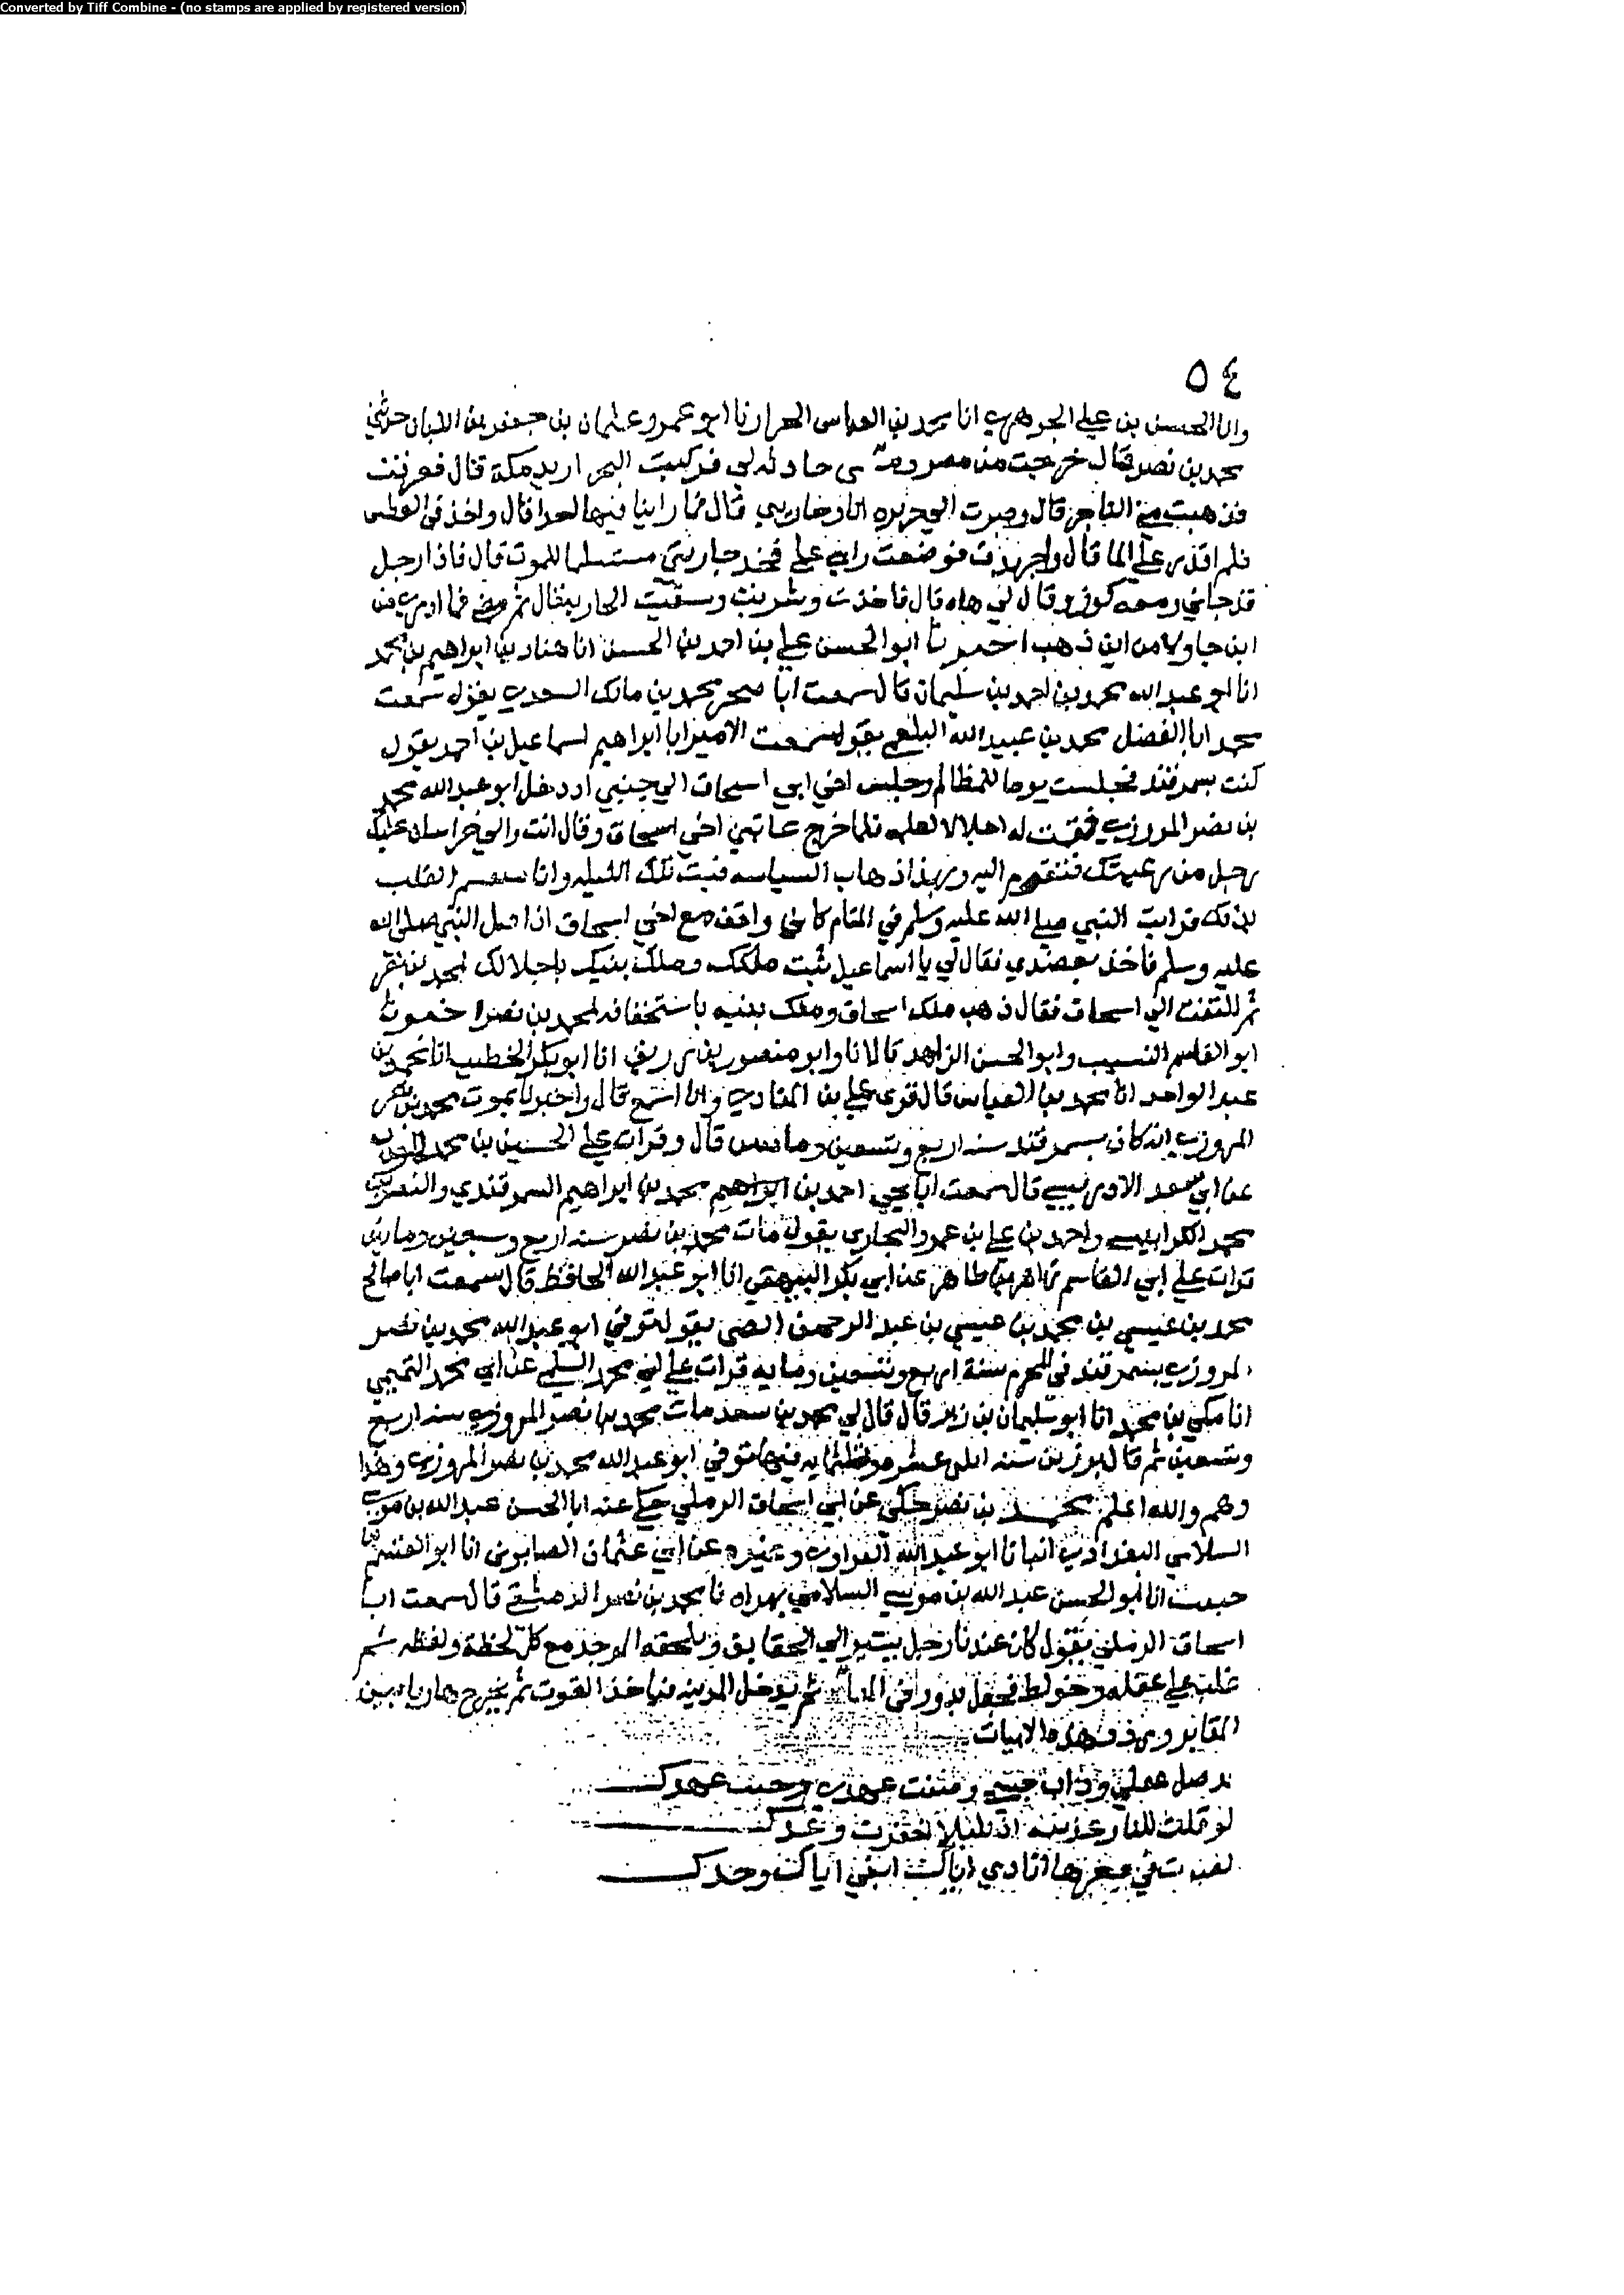 Converted by Tiff Combine - (no stamps are applied by registered version)
٥٤
وانا الحسن بن علي الجوهري انا محمد بن العباس الحرار نا ابو عمرو عثمان بن جعفر بن اللبان حدثني
محمد بن نصر قال خرجت من مصر ومعي جاريه لي فركبت البحر اريد مكة قال فغرقت
فذهبت مني قال وصرت الى جزيره انا وجاريتي قال فما راينا فيها احدا قال واخذني العطش
فلم اقدر على الما قال واجهدت فوضعت راسي على فخذ جاريتي مستسلما للموت قال فاذا رجل
قد جاني ومعه كوز وقال لي هاه قال فاخذت وشربت وسقيت الجاريه قال ثم مضى فما ادري من
اين جا ولا من اين ذهب اخبرنا ابو الحسن علي بن احمد بن الحسن انا هناد بن ابراهيم بن محمد
انا ابو عبد الله محمد بن احمد بن سليمان قال سمعت ابا صخر محمد بن مالك السعدي يقول سمعت
محمد ابا الفضل محمد بن عبيد الله البلعمي يقول سمعت الامير ابا ابراهيم اسماعيل بن احمد يقول
كنت بسمرقند فجلست يوما للمظالم وجلس اخي ابي اسحاق الى جنبي اذ دخل ابو عبد الله محمد
بن نصر المروزي فقمت له اجلالا لعلمه فلما خرج عاتبني اخي اسحاق وقال انت والي خراسان عليك
رجل من رعيتك فتقوم اليه وبهذا ذهاب السياسه فبت تلك الليله وانا القلب
بذلك فرايت النبي صلى الله عليه وسلم في المنام كاني واقف مع اخي اسحاق اذ اقبل النبي صلى الله
عليه وسلم فاخذ بعضدي فقال لي يا اسماعيل ثبت ملكك وملك بنيك باجلالك لمحمد بن نصر
ثم التفت الى اسحاق فقال ذهب ملك اسحاق وملك بنيه باستخفافه لمحمد بن نصر اخبرنا
ابو القاسم النسيب وابو الحسن الزاهد قالا نا وابو منصور بن زريق انا ابو بكر الخطيب انا محمد بن
عبد الواحد انا محمد بن العباس قال قرى على بن المنادي وانا اسمع قال واخبرنا بموت محمد بن نصر
المروزي انه كان بسمرقند سنه اربع وتسعين وماتين قال وقرات على الحسين بن محمد المودب
عن ابي سعد الادريسي قال سمعت ابا يحيى احمد بن ابراهيم محمد بن ابراهيم السمرقندي والنصر بن
محمد الكرابيسي واحمد بن علي بن عمرو البخاري يقول مات محمد بن نصر سنه اربع وسبعين وماتين
قرات على ابي القاسم زاهر بن طاهر عن ابي بكر البيهقي انا ابو عبد الله الحافظ قال سمعت ابا صالح
محمد بن عيسى بن محمد بن عيسى بن عبد الرحمن الضبي يقول توفي ابو عبد الله محمد بن نصر
المروزي بسمرقند في المحرم سنة اربع وتسعين ومايه قرات على ابي محمد السلمي عن ابي محمد التميمي
انا مكي بن محمد انا ابو سليمان بن زبر قال قال لي محمد بن سعد مات محمد بن نصر المروزي سنه اربع
وتسعين ثم قال بن زبر سنه عشر وثلثمايه فيها توفي ابو عبد الله محمد بن نصر المروزي وهذا
وهم والله اعلم محمد بن نصر حكى عن ابي اسحاق الرملي حكى عنه ابا الحسن عبد الله بن موسى
السلامي البغدادي انبانا ابو عبد الله الفراوي وغيره عن ابي عثمان الصابوني انا ابو القسم بن
حبيب انا ابو الحسن عبد الله بن موسى السلامي بهراه نا محمد بن نصر الدمشقي قال سمعت ابا
اسحاق الرملي يقول كان عندنا رجل يشير الى الحقايق ويلحقه الوجد مع كل لحظة ولفظه ثم
غلب على عقله وخولط فجعل يدور في ثم يدخل المدينه فياخذ القوت ثم يخرج هاربا بين
المقابر هذه الابيات
عقلي وذاب جسمي عهدي وحنت عهدك
لو قلت للنار عذبيه وعدك
في قعرها انادي اياك ابغي اياك وحدك